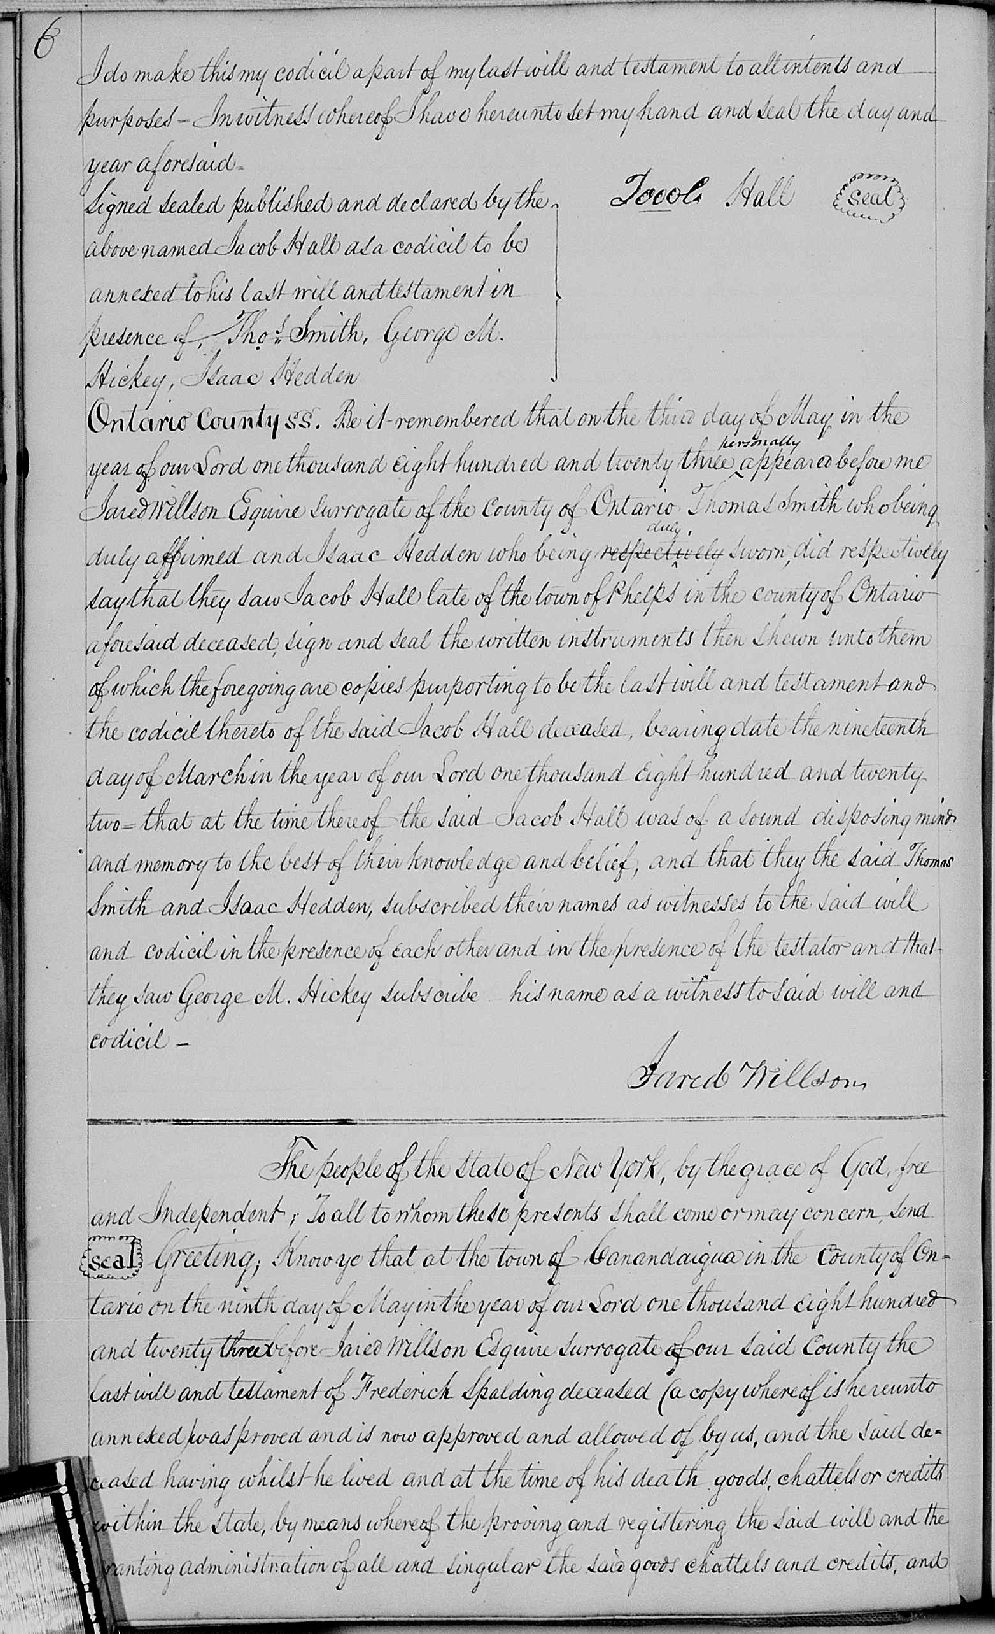 6
I do make this my codicil a part of my last will and testament to all intents and
purposes - In witness whereof I have hereunto set my hand and seal the day and
year aforesaid -
Signed sealed published and declared by the
above named Jacob Hall as a codicil to be
annexed to his last will and testament in
presence of, Thos. Smith, George M.
Hickey, Isaac Hedden
Jacob Hall seal
Ontario County SS. Be it remembered that on the third day of May in the
year of our Lord one thousand eight hundred and twenty three personally appeared before me
Jared Willson Esquire surrogate of the county of Ontario Thomas Smith who being
duly affirmed and Isaac Hedden who being respectively duly sworn, did respectively
say that they saw Jacob Hall late of the town of Phelps in the county of Ontario
aforesaid deceased, sign and seal the written instruments then shewn unto them
of which the foregoing are copies purporting to be the last will and testament and
the codicil thereto of the said Jacob Hall deceased, bearing date the nineteenth
day of March in the year of our Lord one thousand eight hundred and twenty
two = that at the time thereof the said Jacob Hall was of a sound disposing mind
and memory to the best of their knowledge and belief, and that they the said Thomas
Smith and Isaac Hedden, subscribed their names as witnesses to the said will
and codicil in the presence of each other and in the presence of the testator and that
they saw George M. Hickey subscribe his name as a witness to said will and
codicil -
Jared Willson
The people of the State of New York, by the grace of God, free
and Independent; To all to whom these presents shall come or may concern, send
seal Greeting; Know ye that at the town of Canandaigua in the County of On-
tario on the ninth day of May in the year of our Lord one thousand eight hundred
and twenty three before Jared Willson Esquire surrogate of our said County the
last will and testament of Frederick Spalding deceased (a copy whereof is hereunto
annexed) was proved and is now approved and allowed of by us, and the said de-
ceased having whilst he lived and at the time of his death goods, chattels or credits
within the State, by means whereof the proving and registering the said will and the
granting administration of all and singular the said goods chattels and credits, and